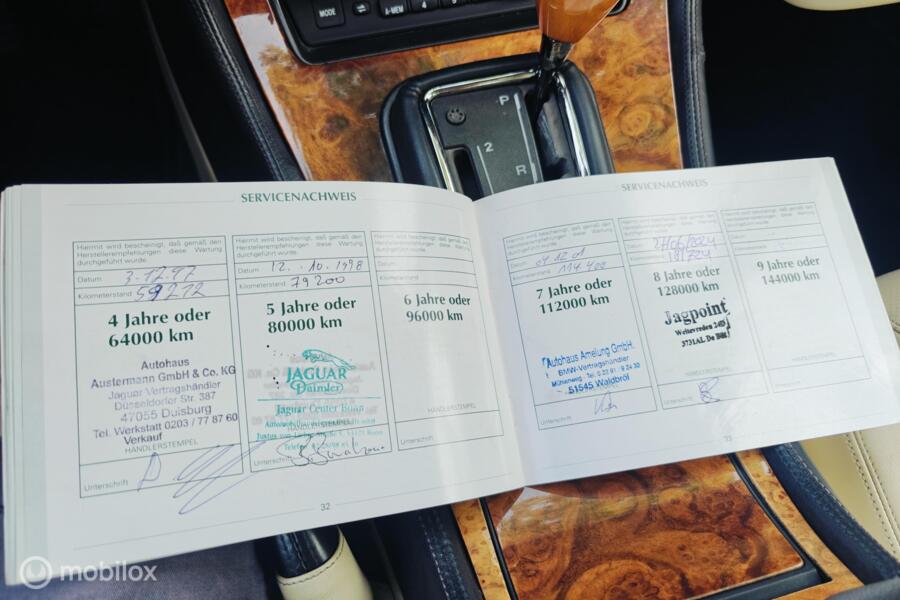 MODE
A-MEM
4
5
P
2
R
SERVICENACHWEIS
Hiermit wird bescheinigt, daß gemäß den
Herstellerempfehlungen diese Wartung
durchgeführt wurde.
Datum 3.12.97
Kilometerstand 59212
4 Jahre oder
64000 km
Autohaus
Austermann GmbH & Co. KG
Jaguar Vertragshändler
Düsseldorfer Str. 387
47055 Duisburg
Tel. Werkstatt 0203 / 77 87 60
Verkauf
HÄNDLERSTEMPEL
Unterschrift
Hiermit wird bescheinigt, daß gemäß den
Herstellerempfehlungen diese Wartung
durchgeführt wurde.
Datum 12. .10.1998
Kilometerstand 79200
5 Jahre oder
80000 km
JAGUAR
Daimler
Jaguar Center Bonn
HÄNDLERSTEMPEL
Unterschrift
Hiermit wird bescheinigt, daß gemäß den
Herstellerempfehlungen diese Wartung
durchgeführt wurde.
Datum
Kilometerstand
6 Jahre oder
96000 km
HÄNDLERSTEMPEL
Unterschrift
32
SERVICENACHWEIS
Hiermit wird bescheinigt, daß gemäß den
Herstellerempfehlungen diese Wartung
durchgeführt wurde.
Datum
Kilometerstand 114.400
7 Jahre oder
112000 km
Autohaus Amelung GmbH.
BMW-Vertragshändler
Mühlenweg Tel. 0 22 91 / 9 24 30
51545 Waldbröl
Unterschrift
Hiermit wird bescheinigt, daß gemäß den
Herstellerempfehlungen diese Wartung
durchgeführt wurde.
Datum
Kilometerstand
8 Jahre oder
128000 km
Jagpoint
Weltevreden 24D
3731AL De Bilt
Unterschrift
Hiermit wird bescheinigt, daß gemäß den
Herstellerempfehlungen diese Wartung
durchgeführt wurde.
9 Jahre oder
144000 km
HÄNDLERSTEMPEL
Unterschrift
33
mobilox